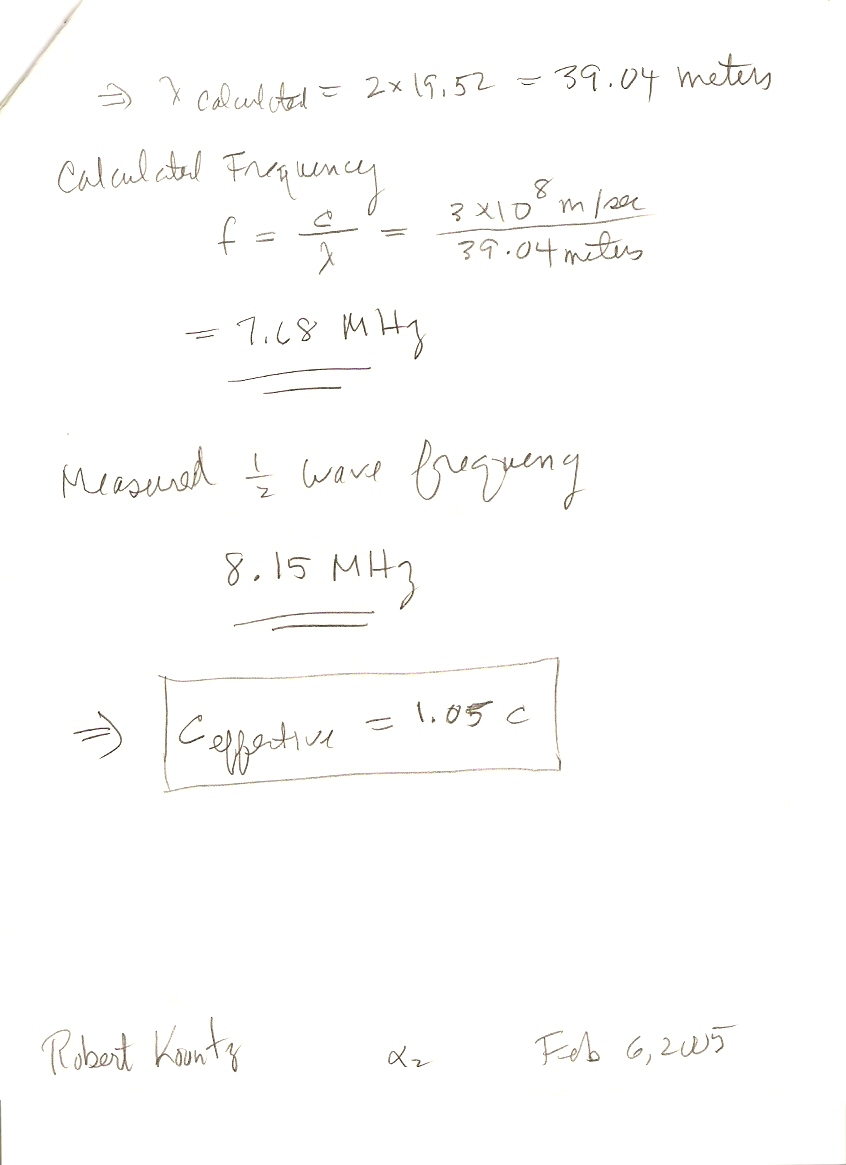 ⇒ λ calculated = 2 × 19.52 = 39.04 meters
Calculated Frequency
f = c/λ = 3 × 10⁸ m/sec / 39.04 meters
= 7.68 MHz
Measured 1/2 wave frequency
8.15 MHz
⇒ C effective = 1.05 c
Robert Kountz α₂ Feb 6, 2005